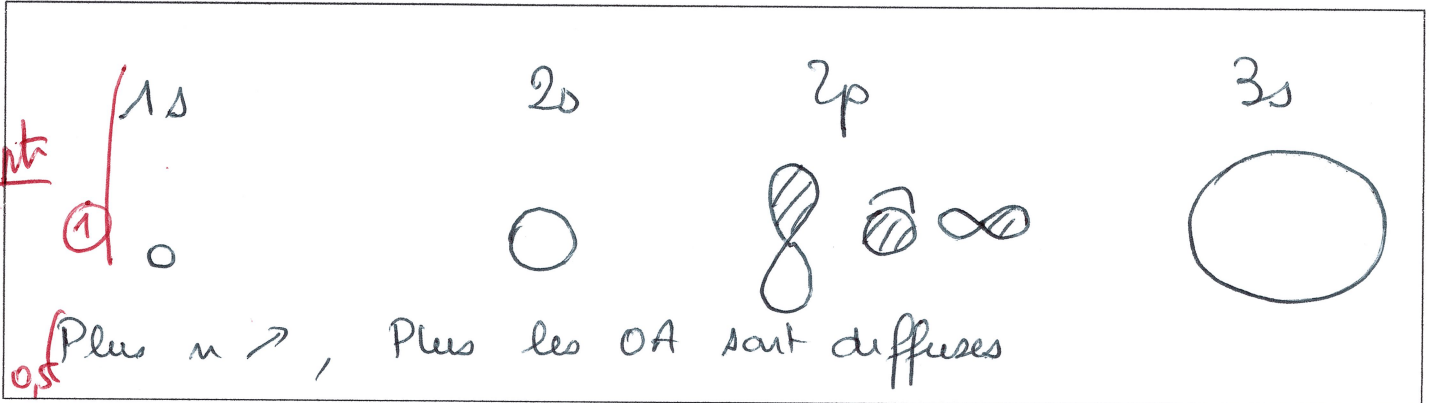 1s 2s 2p 3s
pt
1
Plus n ↗, Plus les OA sont diffuses
0,5